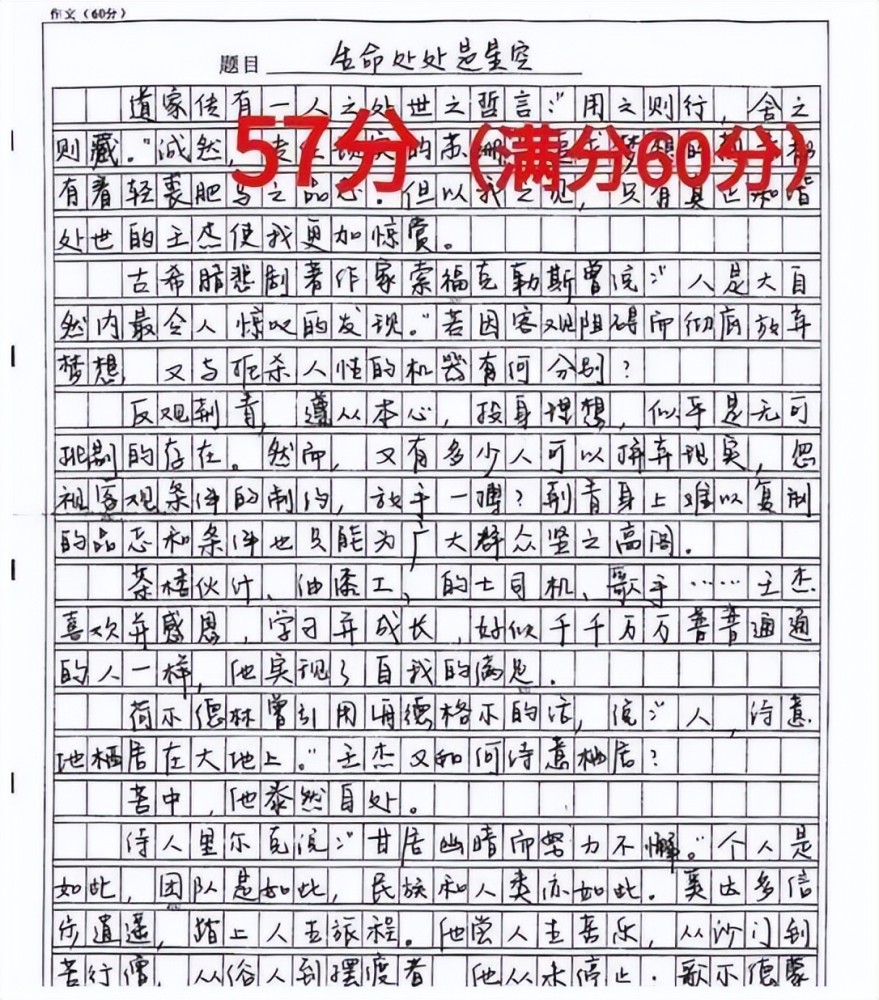 作文（60分）
题目 生命处处是星空
道家传有一人之处世之哲言：“用之则行，舍之
57分（满分60分）
则藏。”诚然，的苏
有着轻裘肥马之品志．但以我之见，只有真
处世的王杰使我更加惊赏。
古希腊悲剧著作家索福克勒斯曾说：“人是大自
然内最令人惊叹的发现。”若因客观阻碍而彻底放弃
梦想，又与扼杀人性的机器有何分别？
反观荆青，遵从本心，投身理想，似乎是无可
挑剔的存在。然而，又有多少人可以摒弃现实，忽
视客观条件的制约，放手一搏？荆青身上难以复制
的品志和条件也只能为广大群众坚之高阁．
茶楼伙计、油漆工、的士司机、歌手……王杰
喜欢并感恩，学习并成长，好似千千万万普普通通
的人一样，他实现了自我的满足．
荷尔德林曾引用海德格尔的话，说：“人，诗意
地栖居在大地上。”王杰又如何诗意栖居？
苦中，他泰然自处。
诗人里尔克说：“甘居幽暗而努力不懈。”个人是
如此，团队是如此，民族和人类亦如此．奚达多信
步逍遥，踏上人生旅程。他尝人生喜乐，从沙门到
苦行僧，从俗人到摆渡者，他从未停止．歌尔德蒙